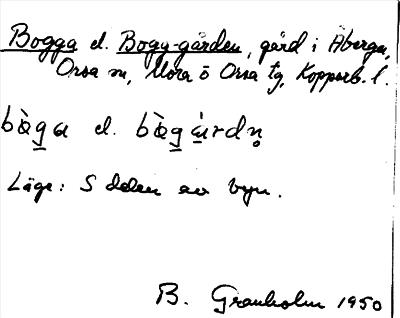 Bogga el. Bogg-gården, gård i Åberga,
Orsa sn, Mora o Orsa tg, Kopparb. l.
bò̱ga el. bò̱gá̱rdn̥
Läge: S delen av byn.
B. Granholm 1950